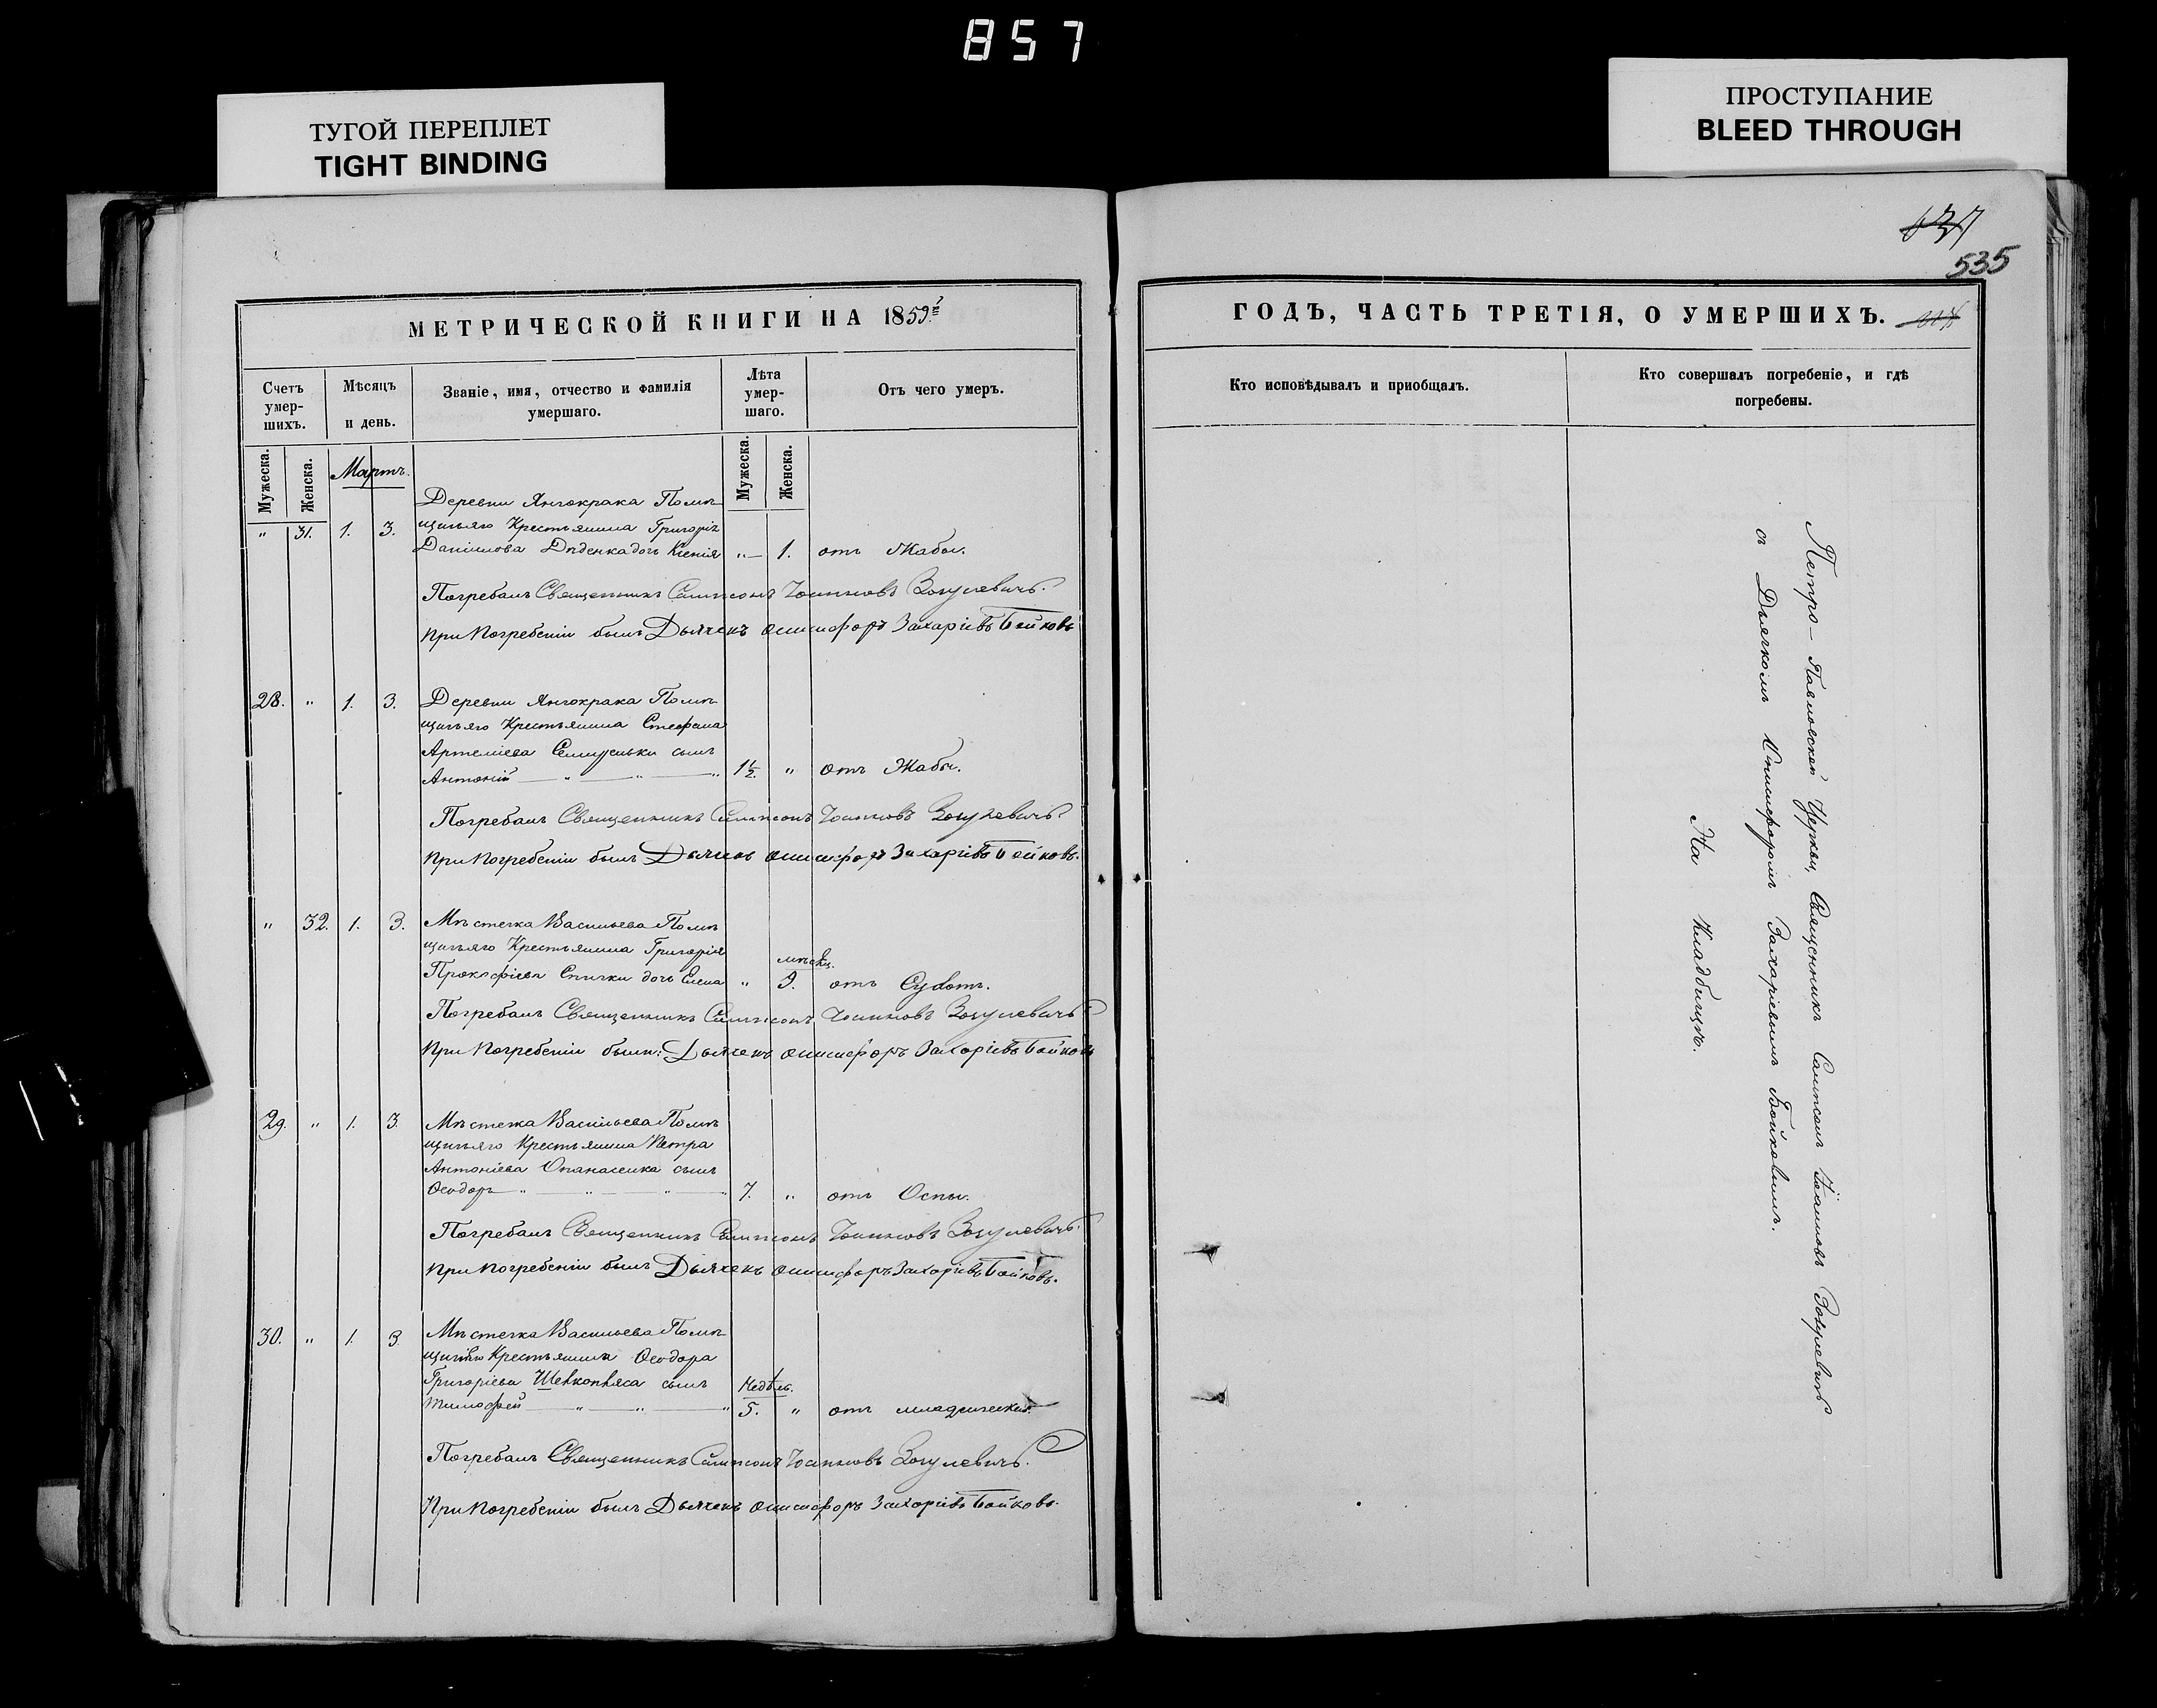 857
ТУГОЙ ПЕРЕПЛЕТ
TIGHT BINDING
ПРОСТУПАНИЕ
BLEED THROUGH
535
МЕТРИЧЕСКОЙ КНИГИ НА 1859й
Счетъ умер-шихъ.
Мѣсяцъ и день.
Званіе, имя, отчество и фамилія умершаго.
Лѣта умер-шаго.
Отъ чего умеръ.
Мужеска.
Женска.
Мартъ.
Мужеска.
Женска.
Деревни Янчокрака Помѣ-
щичьяго Крестьянина Григорія
" 31. 1. 3. Даніилова Дѣденка дочь Ксенія " 1. отъ Жабы.
Погребалъ Священникъ Сампсонъ Іоанновъ Зосулевичъ.
При Погребеніи былъ Дьячекъ Онисифоръ Захаріевъ Бойковъ
28. " 1. 3. Деревни Янчокрака Помѣ-
щичьяго Крестьянина Стефана
Артеміева сынъ
Антоній " " " 1½. " отъ Жабы.
Погребалъ Священникъ Сампсонъ Іоанновъ Зосулевичъ
При Погребеніи былъ Дьячекъ Онисифоръ Захаріевъ Бойковъ.
" 32. 1. 3. Мѣстечка Васильева Помѣ-
щичьяго Крестьянина Григорія
мѣсяц.
Прокофіева Спички дочь Елена " 9. отъ Сухотъ.
Погребалъ Священникъ Сампсонъ Іоанновъ Зосулевичъ
При Погребеніи былъ: Дьячекъ Онисифоръ Захаріевъ Бойковъ
29. " 1. 3. Мѣстечка Васильева Помѣ-
щичьяго Крестьянина Петра
Антоніева Опанасенка сынъ
Ѳеодоръ " " " " 7. " отъ Оспы.
Погребалъ Священникъ Сампсонъ Іоанновъ Зосулевичъ.
При Погребеніи былъ Дьячекъ Онисифоръ Захаріевъ Бойковъ.
30. " 1. 3. Мѣстечка Васильева Помѣ-
Крестьянина Ѳеодора
Григоріева Шевкопляса сынъ Недѣль.
Тимофей " " " 5. " отъ младенческой.
Погребалъ Священникъ Сампсонъ Іоанновъ Зосулевичъ.
При Погребеніи былъ Дьячекъ Онисифоръ Захаріевъ Бойковъ.
ГОДЪ, ЧАСТЬ ТРЕТІЯ, О УМЕРШИХЪ.
Кто исповѣдывалъ и пріобщалъ.
Кто совершалъ погребеніе, и гдѣ погребены.
Петро-Павловской Церкви, Священникъ Сампсонъ Іоанновъ Зосулевичъ
съ Дьячкомъ Онисифоромъ Захаріевымъ Бойковымъ.
На Кладбищѣ.